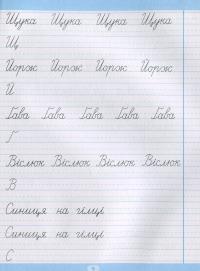 Щука Щука Щука Щука
Щ
Йорж Йорж Йорж Йорж
Й
Ґава Ґава Ґава Ґава Ґава
Ґ
Віслюк Віслюк Віслюк Віслюк
В
Синиця на гілці
Синиця на гілці
С